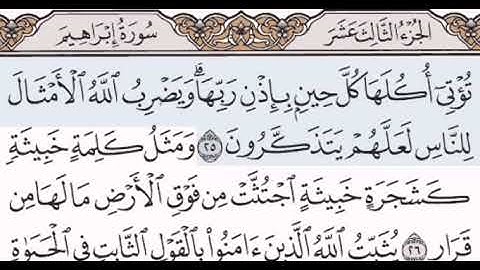 الجُزْءُ الثَّالِثَ عَشَرَ سُورَةُ إِبْرَاهِيمَ
تُؤْتِىٓ أُكُلَهَا كُلَّ حِينٍۭ بِإِذْنِ رَبِّهَاۗ وَيَضْرِبُ ٱللَّهُ ٱلْأَمْثَالَ
لِلنَّاسِ لَعَلَّهُمْ يَتَذَكَّرُونَ ٢٥ وَمَثَلُ كَلِمَةٍ خَبِيثَةٍ
كَشَجَرَةٍ خَبِيثَةٍ ٱجْتُثَّتْ مِن فَوْقِ ٱلْأَرْضِ مَا لَهَا مِن
قَرَارٍ ٢٦ يُثَبِّتُ ٱللَّهُ ٱلَّذِينَ ءَامَنُوا۟ بِٱلْقَوْلِ ٱلثَّابِتِ فِى ٱلْحَيَوٰةِ